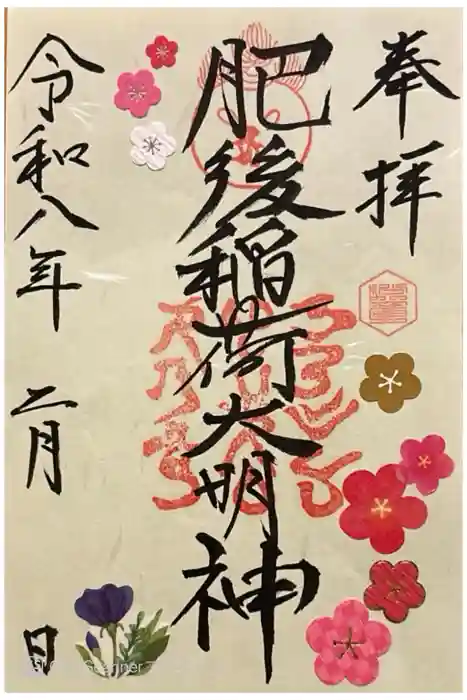 奉拝
肥後稲荷大明神
令和八年 二月 日